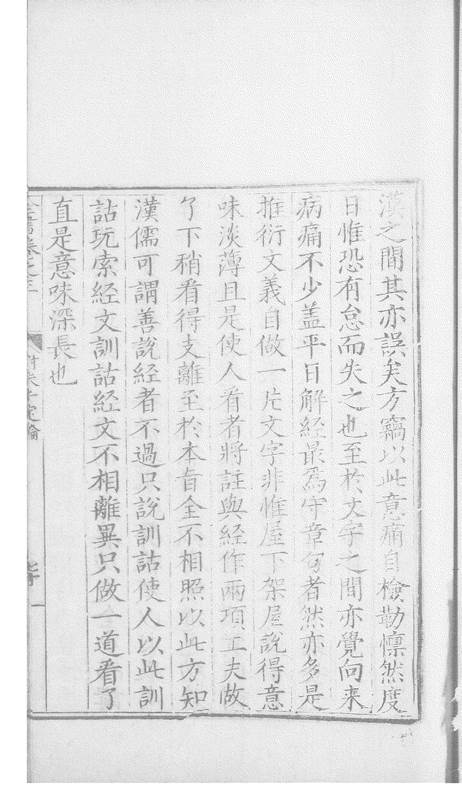 漢之間其亦誤矣方竊以此意痛自檢勒懍然度
日惟恐有怠而失之也至於文字之間亦覺向来
病痛不少盖平日解經最為守章句者然亦多是
推衍文義自做一片文字非惟屋下架屋說得意
味淡薄且是使人看者將註與經作兩項工夫做
了下稍看得支離至於本旨全不相照以此方知
漢儒可謂善說經者不過只說訓詁使人以此訓
詁玩索經文訓詁經文不相離異只做一道看了
直是意味深長也
全書卷之三